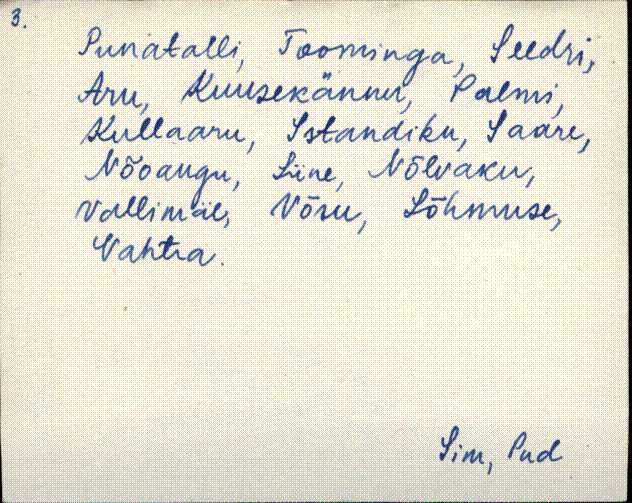 3.
Punatalli, Toominga, Seedri,
Aru, Kuusekännu, Palmi,
Kullaaru, Istandiku, Saare,
Nõoaugu, Liine, Nõlvaku,
Vallimäe, Võsu, Lõhmuse,
Vahtra.
Sim, Pud